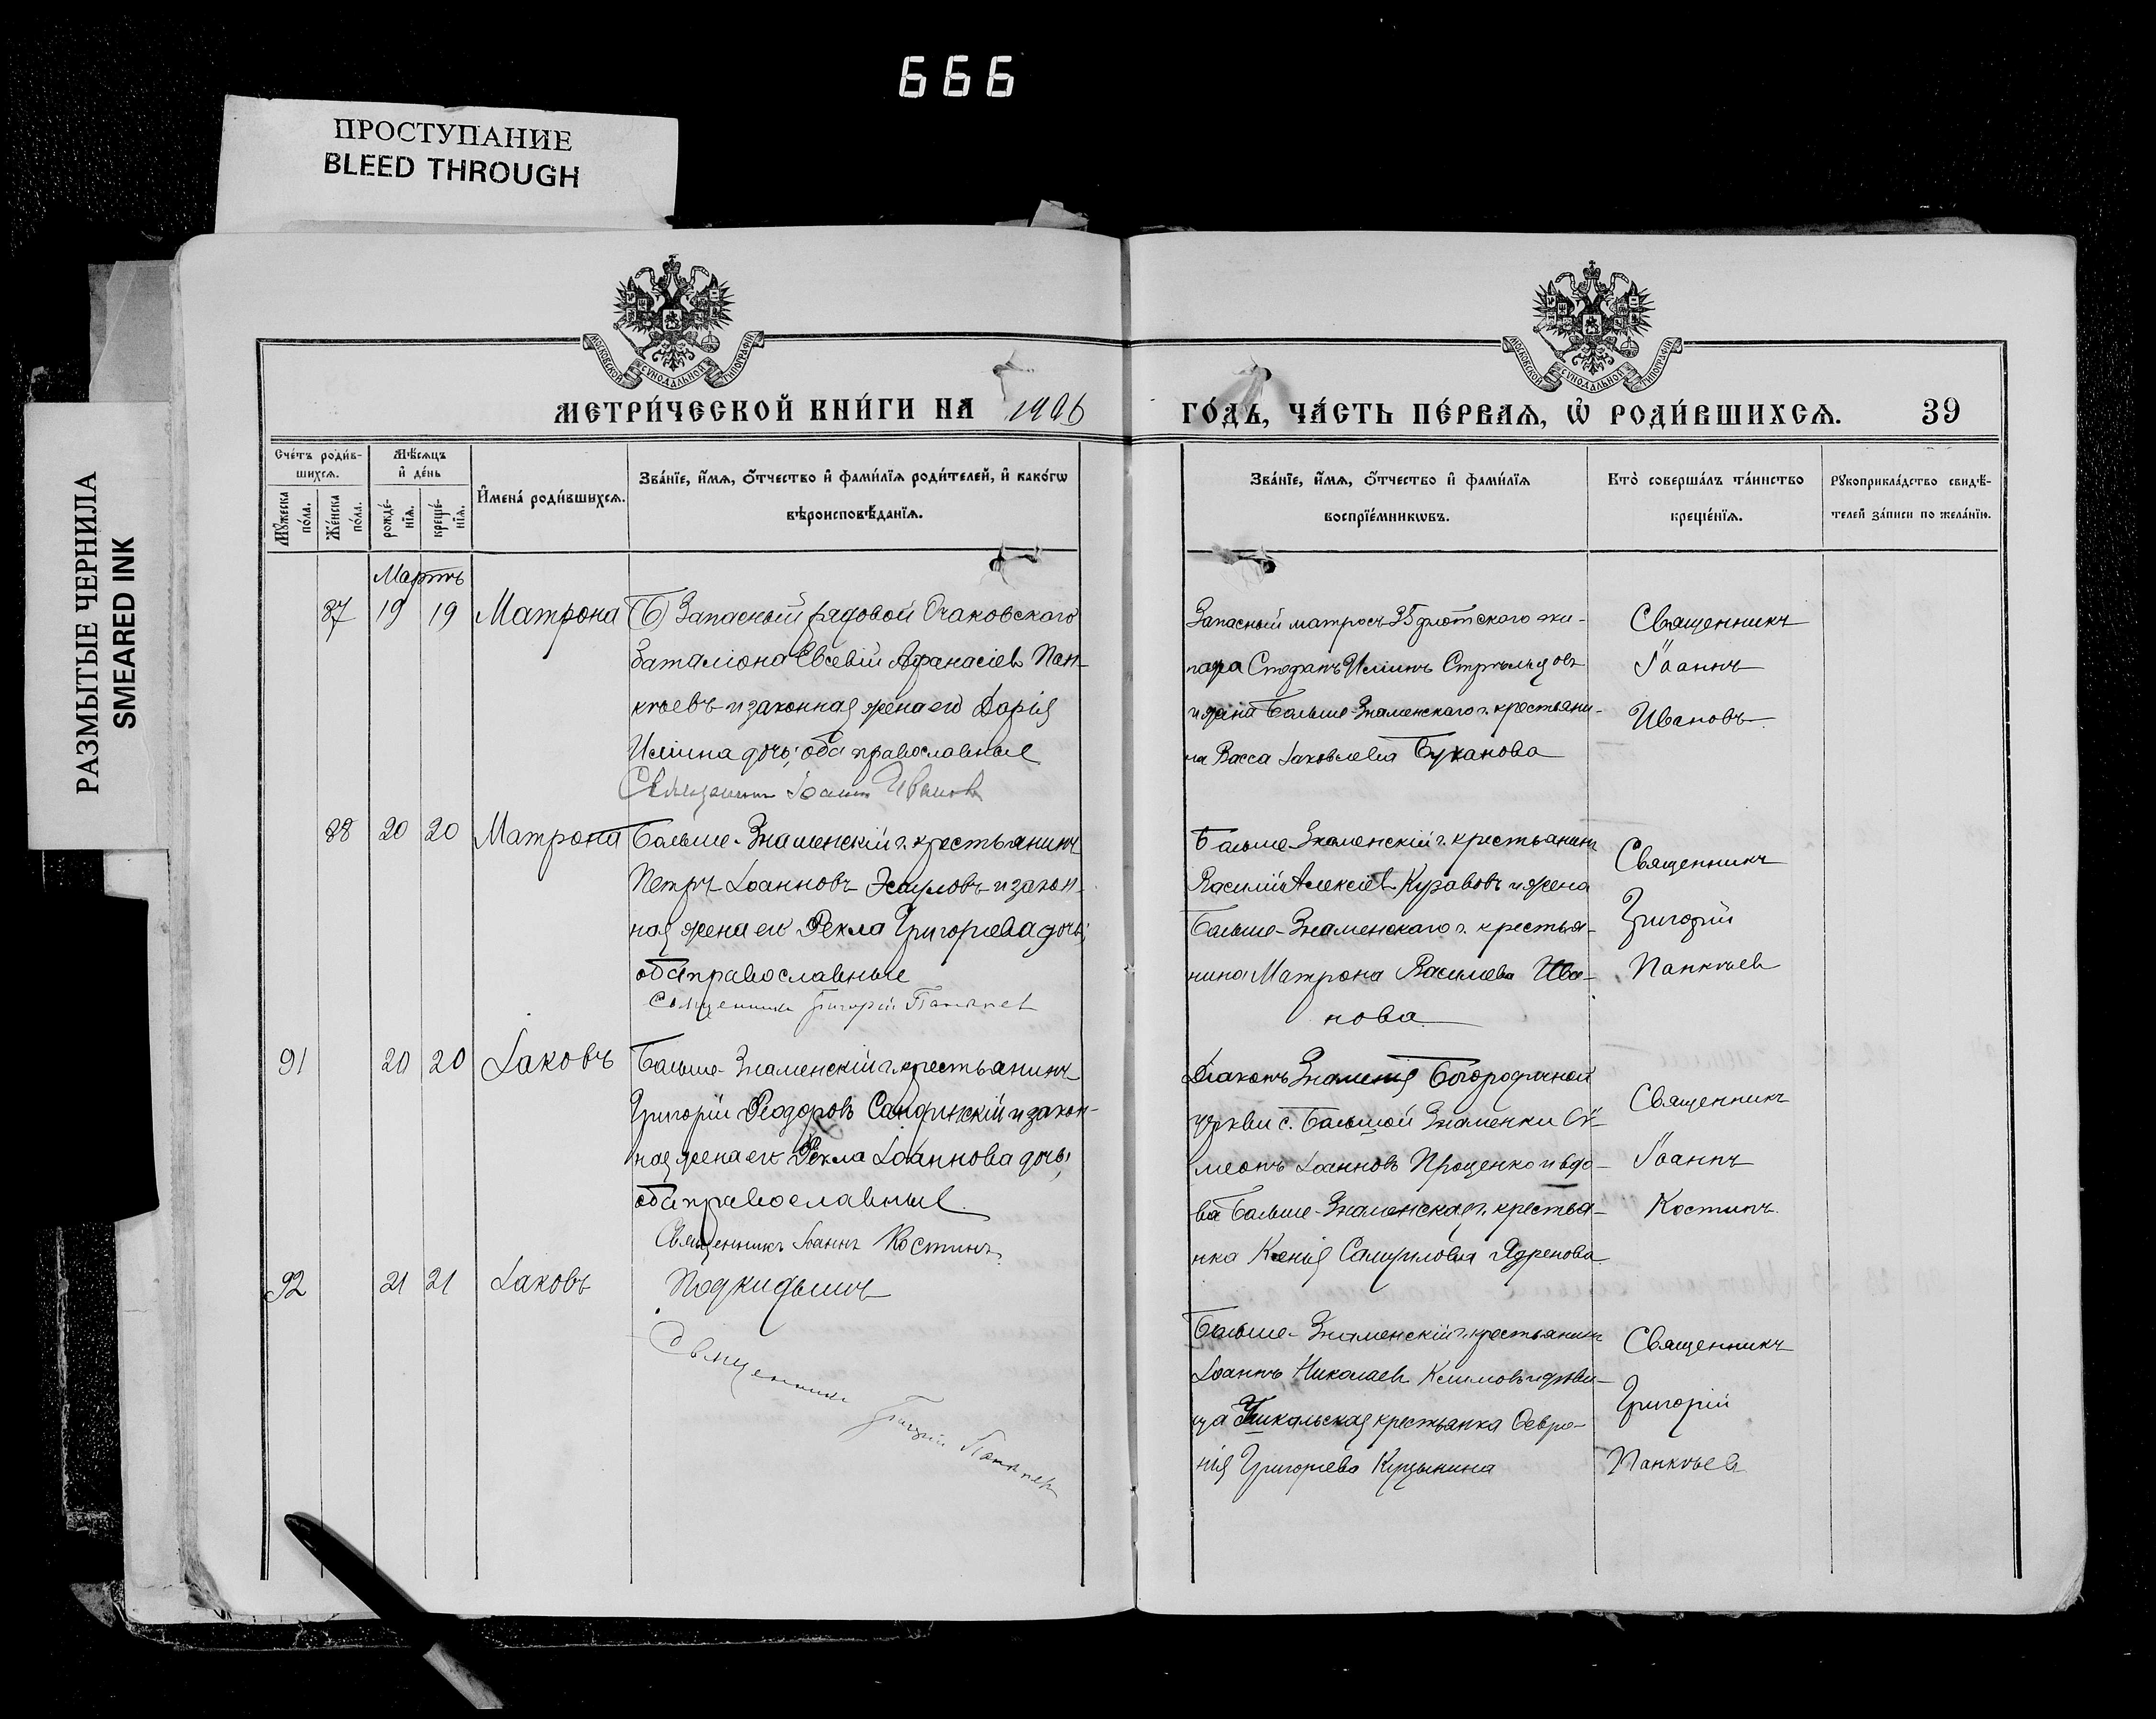 666
ПРОСТУПАНИЕ
BLEED THROUGH
РАЗМЫТЫЕ ЧЕРНИЛА
SMEARED INK
МОСКОВСКОЙ СѴНОДАЛЬНОЙ ТИПОГРАФІИ
МОСКОВСКОЙ СѴНОДАЛЬНОЙ ТИПОГРАФІИ
МЕТРИ́ЧЕСКОЙ КНИ́ГИ НА 1906
ГО́ДЪ, ЧА́СТЬ ПЕ́РВАѦ, Ѽ РОДИ́ВШИХСѦ. 39
Сче́тъ роди́в-
шихсѧ.
Мꙋ́жеска по́ла.
Же́нска по́ла.
Мѣ́сѧцъ
и҆ де́нь
рожде́-
нїѧ.
креще́-
нїѧ.
И҆мена̀ роди́вшихсѧ.
Зва́нїе, и҆́мѧ, ѻ҆́тчество и҆ фами́лїѧ роди́телей, и҆ како́гѡ
вѣроисповѣ́данїѧ.
Зва́нїе, и҆́мѧ, ѻ҆́тчество и҆ фами́лїѧ
воспрїе́мникѡвъ.
Кто̀ соверша́лъ та́инство
креще́нїѧ.
Рꙋкоприкла́дство свидѣ́-
телей за́писи по жела́нїю.
Мартъ
87 19 19 Матрона
(Б) Запасный рядовой Очаковскаго
баталіона Евсевій Афанасіевъ Пан-
кѣевъ и законная жена его Дарія
Иліина дочь; оба православные
Священникъ Іоаннъ Ивановъ
Запасный матросъ 35 флотскаго эки-
пажа Стефанъ Иліинъ Стрѣльцовъ
и жена Больше-Знаменскаго г. крестьяни-
на Васса Іаковлева Буханова
Священникъ
Іоаннъ
Ивановъ
88 20 20 Матрона
Больше-Знаменскій г. крестьянинъ
Петръ Іоанновъ Эсауловъ и закон-
ная жена его Ѳекла Григоріева дочь;
оба православные
Священникъ Григорій Панкѣев
Больше-Знаменскій г. крестьянинъ
Василій Алексіев Куравовъ и жена
Больше-Знаменскаго г. крестья-
нина Матрона Василіева Ива-
нова
Священникъ
Григорій
Панкѣев
91 20 20 Іаковъ
Больше-Знаменскій г. крестьянинъ
Григорій Ѳеодоровъ и закон-
ная жена его Ѳекла Іоаннова дочь;
оба православные
Священникъ Іоаннъ Костинъ
Діаконъ Знаменія Богородичной
церкви с. Большой Знаменки Си-
меонъ Іоанновъ Проценко и вдо-
ва Больше-Знаменская г. крестья-
нка Ксенія Самуилова Ядренова
Священникъ
Іоаннъ
Костинъ
92 21 21 Іаковъ
Подкидышъ
Священникъ Григорій Панкѣев
Больше-Знаменскій г. крестьянинъ
Іоаннъ Николаев Климовъ и дѣви-
ца крестьянка Февро-
нія Григоріева
Священникъ
Григорій
Панкѣев